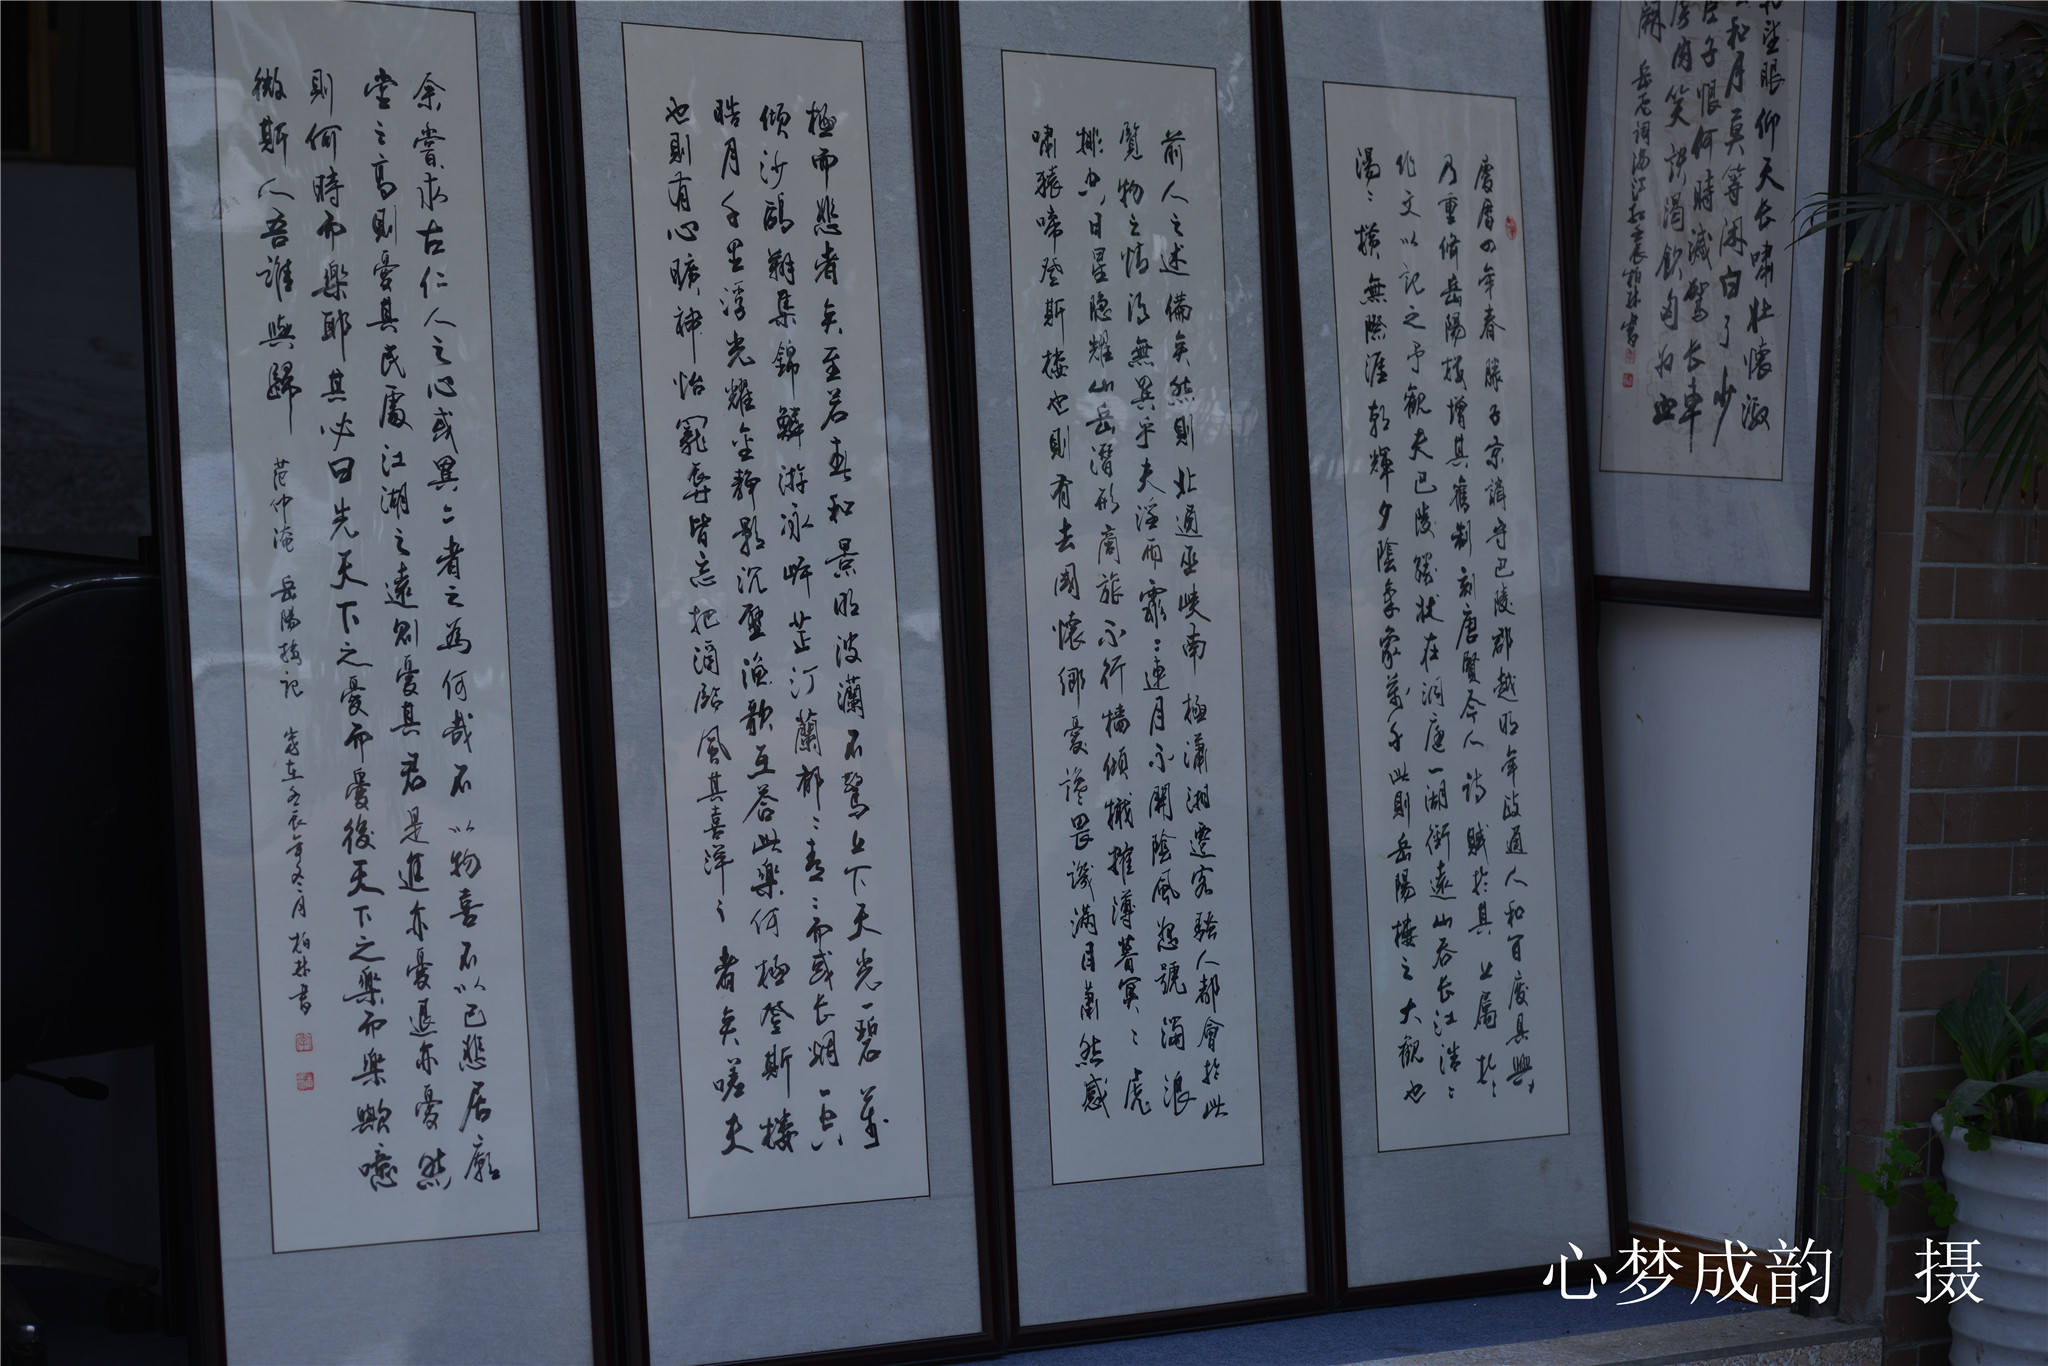 慶曆四年春滕子京謫守巴陵郡越明年政通人和百廢具興
乃重脩岳陽樓增其舊制刻唐賢今人詩賦於其上屬於
作文以記之予觀夫巴陵勝狀在洞庭一湖銜遠山吞长江浩〻
湯〻橫無際涯朝輝夕陰氣象萬千此則岳陽樓之大觀也
前人之述備矣然則北通巫峽南極瀟湘遷客騷人都會於此
覽物之情得無異乎夫淫雨霏〻連月不開陰風怒號濁浪
排空日星隐耀山岳潛形商旅不行檣傾檝摧薄暮冥〻虎
嘯猿啼登斯楼也則有去國懷鄉憂讒畏譏滿目蕭然感
極而悲者矣至若春和景明波瀾不驚上下天光一碧萬
傾沙鷗翔集錦鱗游泳岸芷汀蘭郁〻青〻而或长烟一空
皓月千里浮光耀金静影沉璧漁歌互答此樂何極登斯楼
也則有心曠神怡寵辱皆忘把酒臨風其喜洋〻者矣嗟夫
余嘗求古仁人之心或異二者之為何哉不以物喜不以己悲居廟
堂之高則憂其民處江湖之遠則憂其君是進亦憂退亦憂然
則何時而樂耶其必曰先天下之憂而憂後天下之樂而樂歟噫
微斯人吾誰與歸
范仲淹 岳陽樓記 歲在壬辰年冬月柏林書
望眼仰天长嘯壯懷激
和月莫等闲白了少
臣子恨何時滅驚长車
肉笑談渴飲匈奴血
闕 岳飞詞满江红壬辰柏林書
心梦成韵 摄